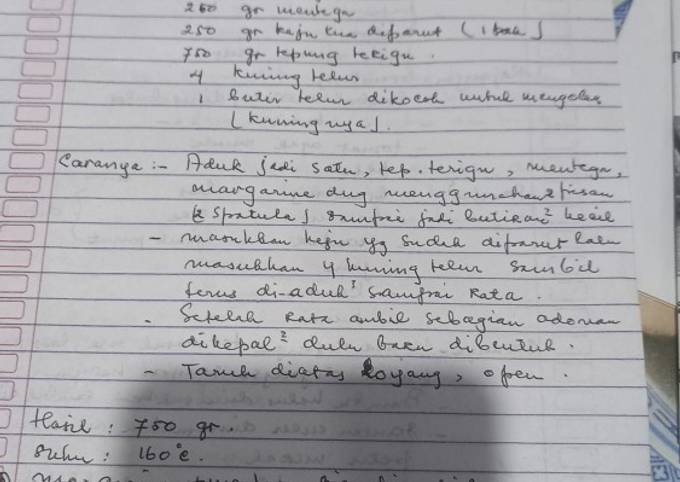 260 gr mentega
250 gr keju tua diparut (1 bak)
750 gr tepung terigu.
4 kuning telur
1 butir telur dikocok untuk mengoles
(kuningnya).
Caranya :- Aduk jadi satu, tep. terigu, mentega,
margarine dng menggunakan 2 pisau
(2 spatula) sampai jadi butiran² kecil
- masukkan keju yg sudah diparut lalu
masukkan 4 kuning telur sambil
terus di-aduk² sampai rata.
- Setelah rata ambil sebagian adonan
dikepal² dulu baru dibentuk.
- Taruh diatas loyang, open.
Hasil : 750 gr.
Suhu : 160°c.